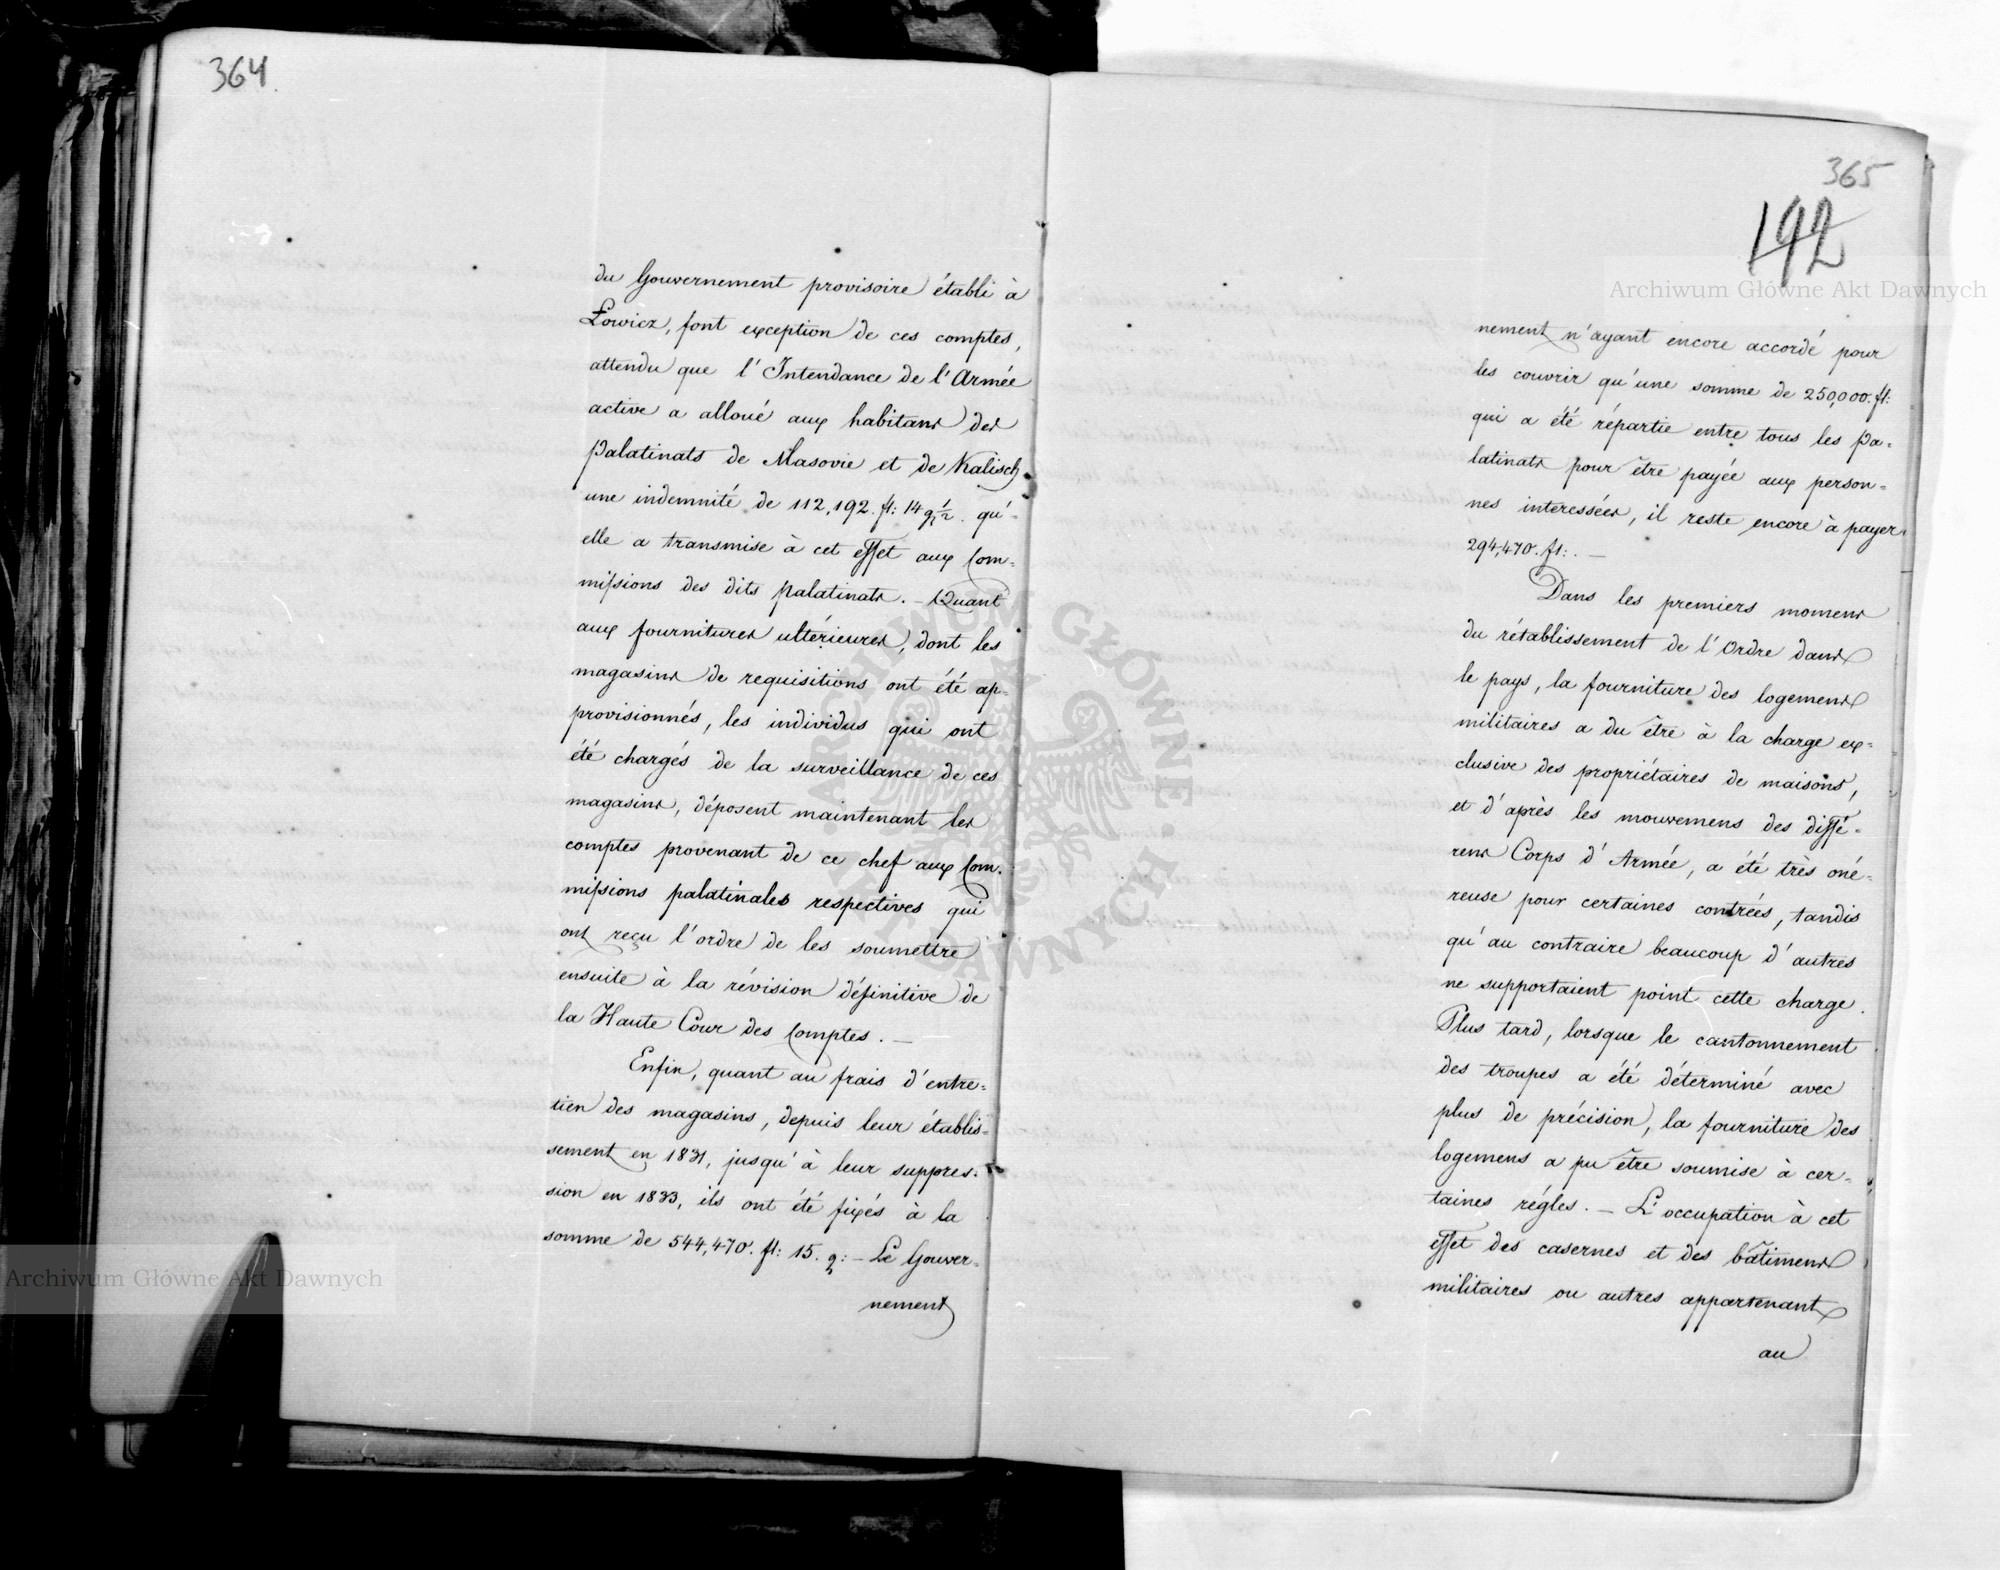 364.
du Gouvernement provisoire établi à
Łowicz, font exception de ces comptes,
attendu que l'Intendance de l'Armée
active a alloué aux habitans des
Palatinats de Masovie et de Kalisch
une indemnité de 112,192. fl: 14 g. ½. qu'-
elle a transmise à cet effet aux Com-
missions des dits Palatinats. — Quant
aux fournitures ultérieures, dont les
magasins de requisitions ont été ap-
provisionnés, les individus qui ont
été chargés de la surveillance de ces
magasins, déposent maintenant les
comptes provenant de ce chef aux Com-
missions palatinales respectives qui
ont reçu l'ordre de les soumettre
ensuite à la révision définitive de
la Haute Cour des Comptes. —
Enfin, quant au frais d'entre-
tien des magasins, depuis leur établis-
sement en 1831, jusqu'à leur suppres-
sion en 1833, ils ont été fixés à la
somme de 544,470. fl: 15. g: — Le Gouver-
nement
365
192
nement n'ayant encore accordé pour
les couvrir qu'une somme de 250,000. fl:
qui a été répartie entre tous les Pa-
latinats pour être payée aux person-
nes interessées, il reste encore à payer
294,470. fl: . —
Dans les premiers momens
du rétablissement de l'Ordre dans
le pays, la fourniture des logemens
militaires a du être à la charge ex-
clusive des propriétaires de maisons,
et d'après les mouvemens des diffé-
rens Corps d'Armée, a été très oné-
reuse pour certaines contrées, tandis
qu'au contraire beaucoup d'autres
ne supportaient point cette charge.
Plus tard, lorsque le cantonnement
des troupes a été déterminé avec
plus de précision, la fourniture des
logemens a pu être soumise à cer-
taines régles. — L'occupation à cet
effet des casernes et des bâtimens
militaires ou autres appartenant
au
Archiwum Główne Akt Dawnych
Archiwum Główne Akt Dawnych
ARCHIWUM GŁÓWNE AKT DAWNYCH